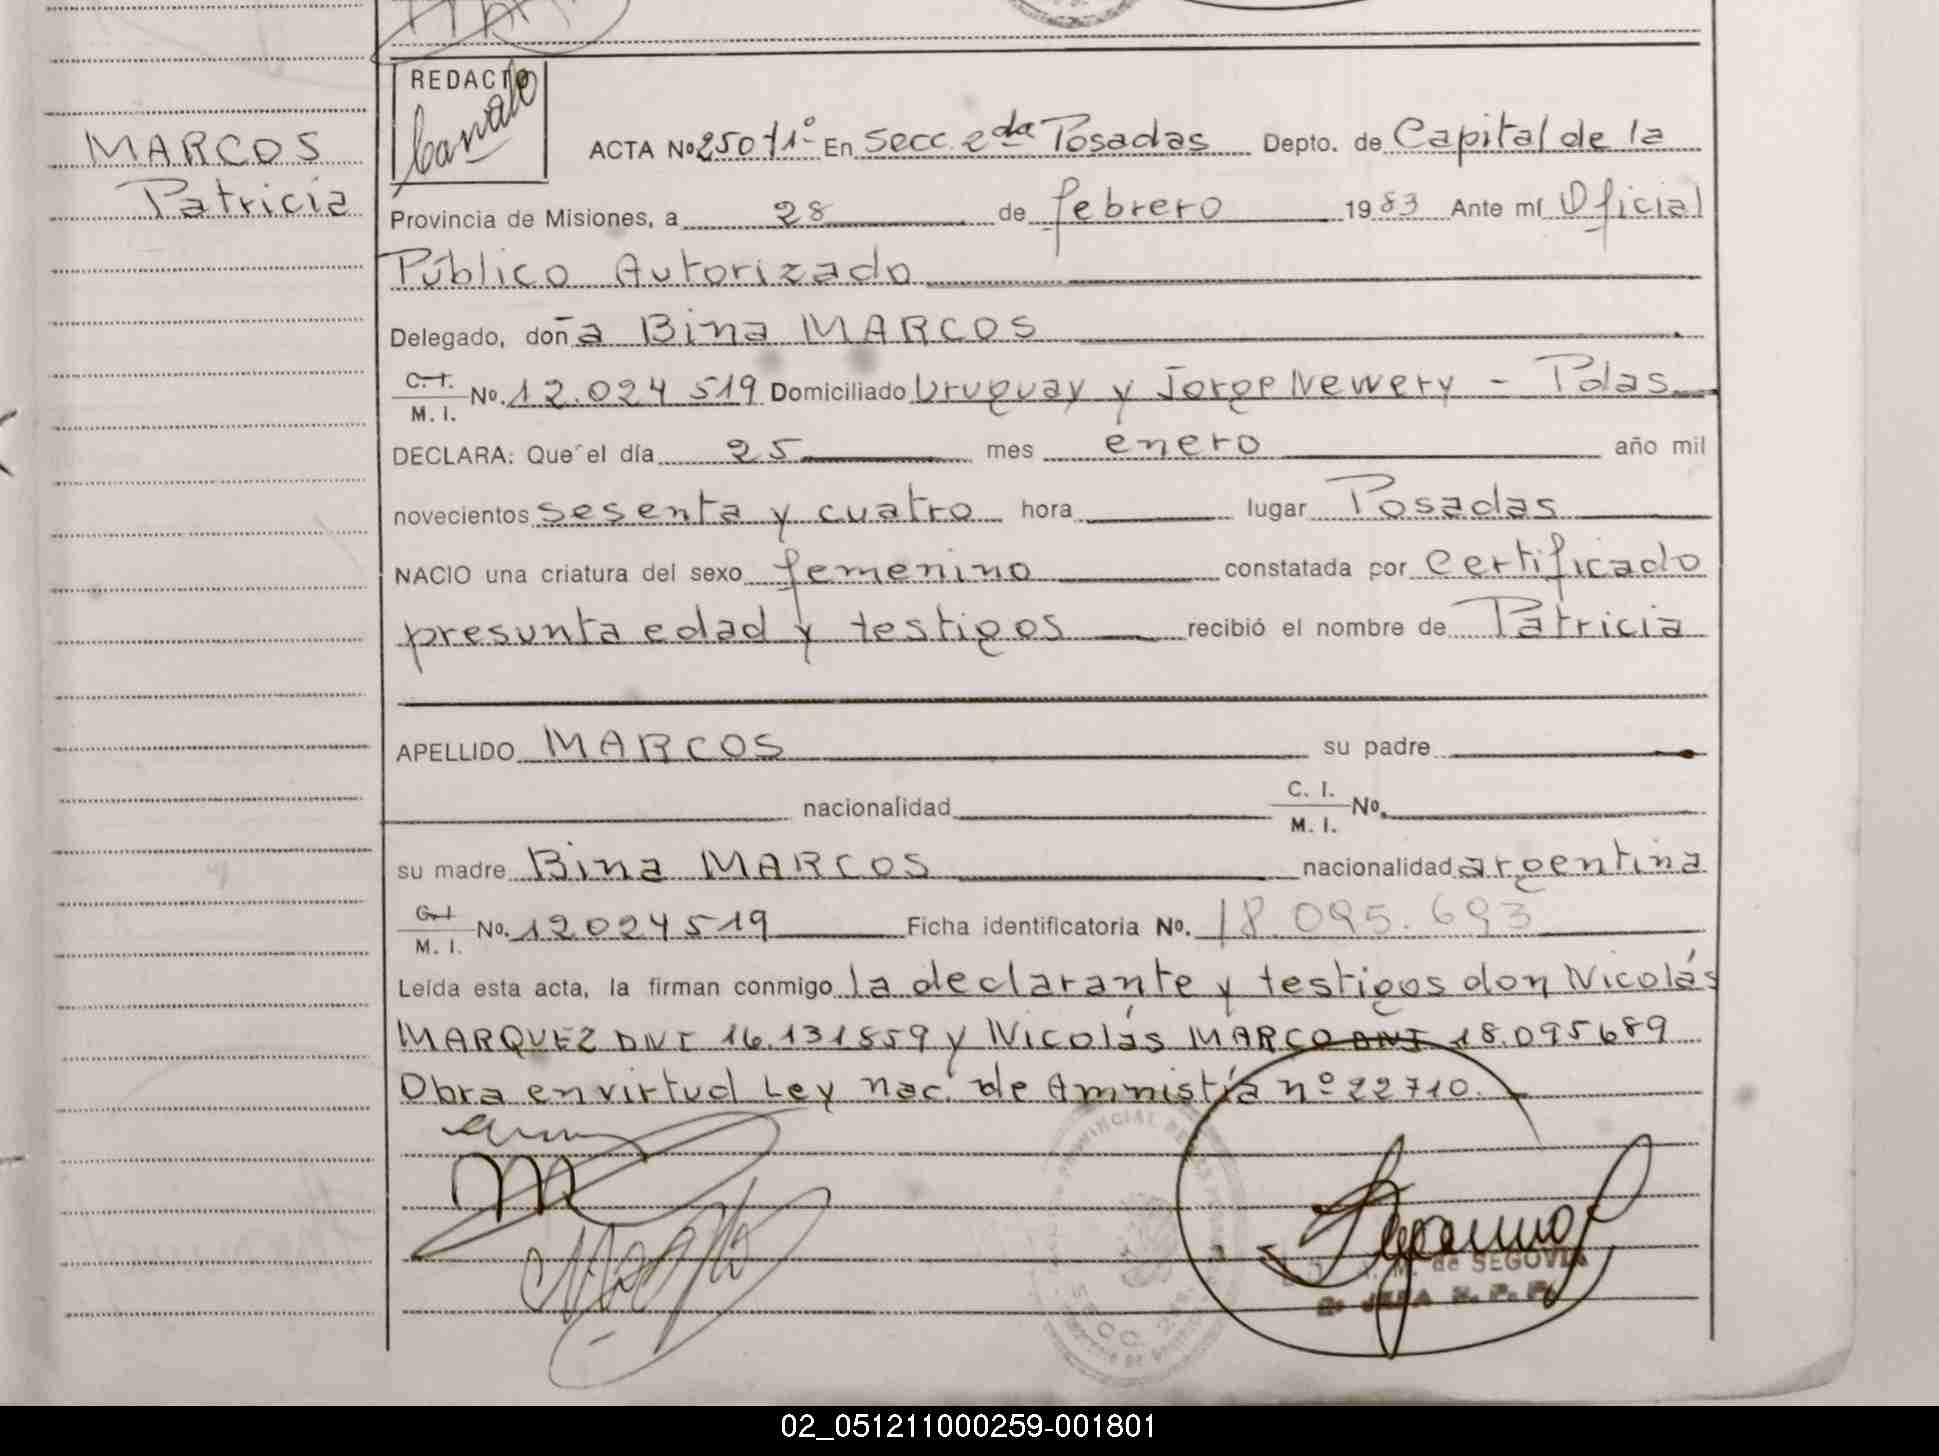 REDACTO
MARCOS
Patricia
ACTA Nº 250 T1º En Secc. 2da Posadas Depto. de Capital de la
Provincia de Misiones, a 28 de febrero 1983 Ante mí Oficial
Público Autorizado
Delegado, doña Bina MARCOS
C. I. M. I. No. 12.024 519 Domiciliado Uruguay y Jorge Newery - Pdas
DECLARA: Que el día 25 mes enero año mil
novecientos sesenta y cuatro hora lugar Posadas
NACIO una criatura del sexo femenino constatada por certificado
presunta edad y testigos recibió el nombre de Patricia
APELLIDO MARCOS su padre
nacionalidad C. I. M. I. No.
su madre Bina MARCOS nacionalidad argentina
C. I. M. I. No. 12024519 Ficha identificatoria No. 18.095.693
Leída esta acta, la firman conmigo la declarante y testigos don Nicolás
MARQUEZ DNI 16.131859 y Nicolás MARCO DNI 18.095689
Obra en virtud Ley nac. de Amnistía nº 22710.
de SEGOVIA
SECC. 2da
02_051211000259-001801